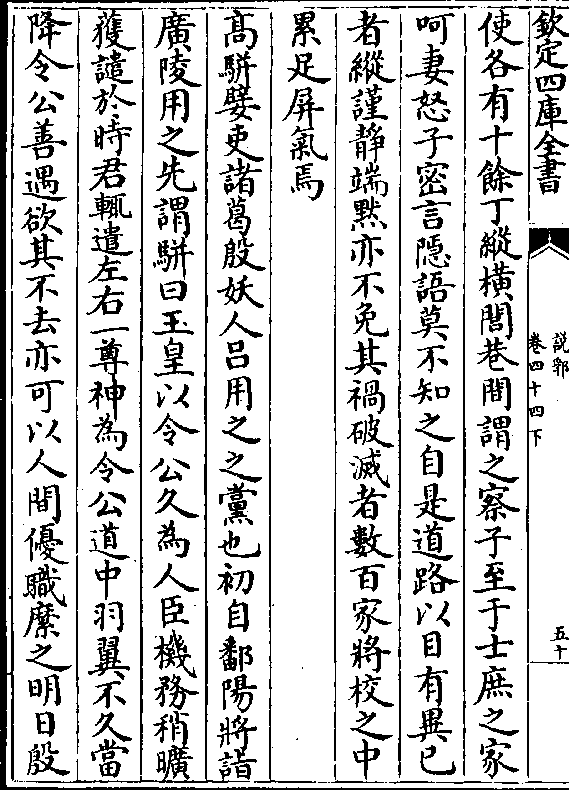 欽定四庫全書
說郛
卷四十四下
五十
使各有十餘丁縱橫閭巷間謂之察子至于士庶之家
呵妻怒子密言隠語莫不知之自是道路以目有異已
者縱謹靜端黙亦不免其禍破滅者數百家將校之中
累足屏氣焉
髙駢嬖吏諸葛殷妖人呂用之之黨也初自鄱陽將詣
廣陵用之先謂駢曰玉皇以令公久為人臣機務稍曠
獲譴於時君輒遣左右一尊神為令公道中羽翼不久當
降令公善遇欲其不去亦可以人間優職縻之明日殷